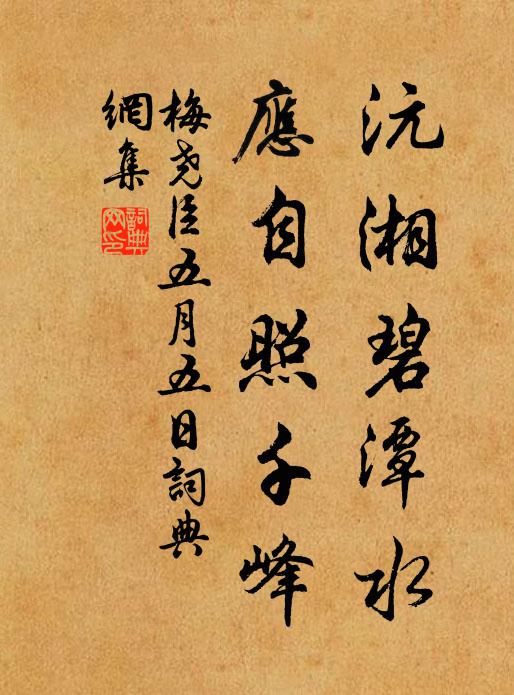 沅湘碧潭水
應自照千峰
梅堯臣五月五日詞典
網集
詞典
网印